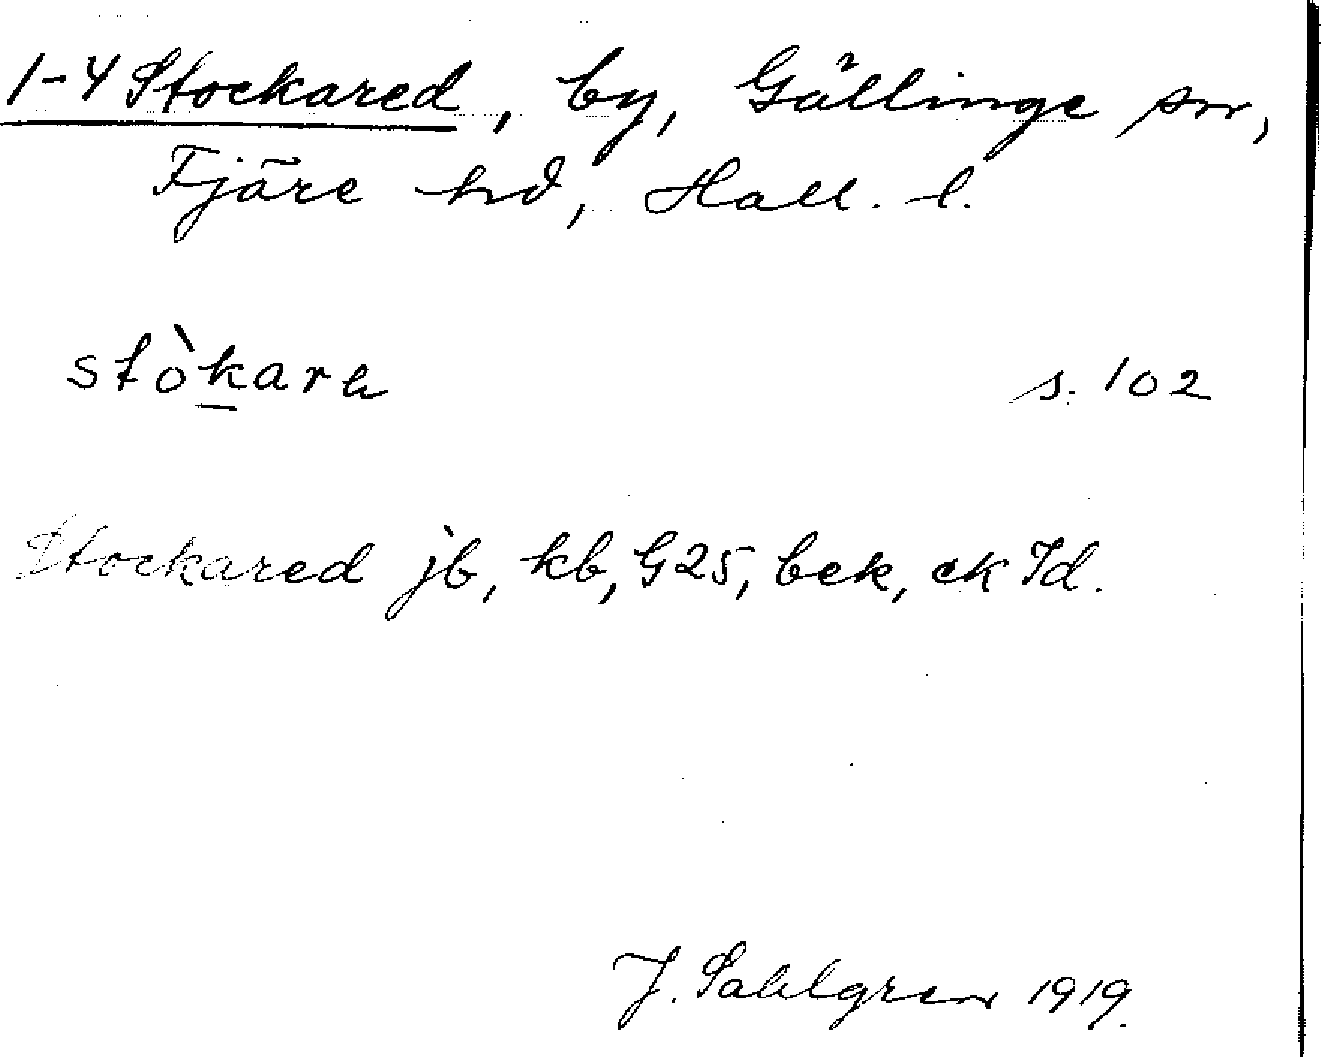 1-4 Stockared, by, Gällinge sn,
Fjäre hd, Hall. l.
stòkara s. 102
Stockared jb, kb, G25, bek, ek Id.
J. Sahlgren 1919.